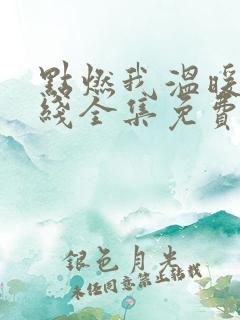 點燃我溫暖
綫全集免費
銀色月光
未經同意禁止轉載